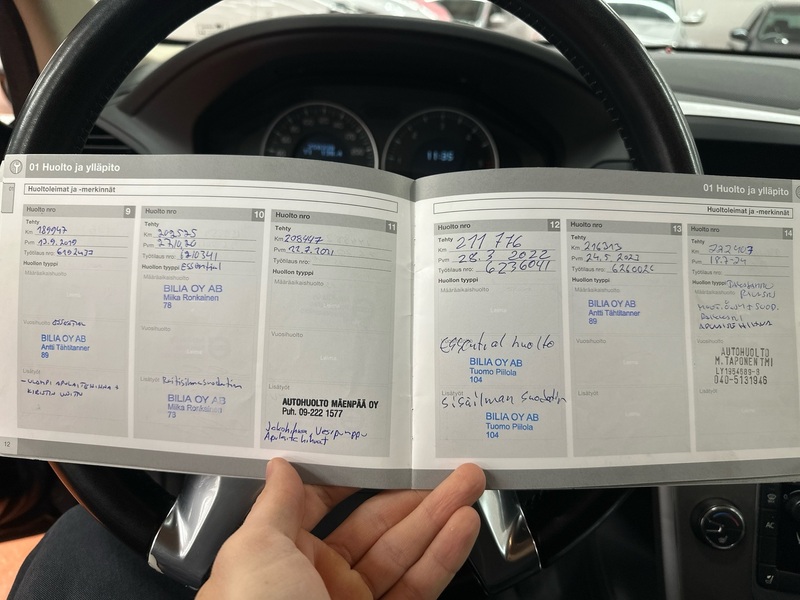 01 Huolto ja ylläpito
Huoltoleimat ja -merkinnät
Huolto nro 9
Tehty
Km 189947
Pvm 12.9.2019
Työtilaus nro:
Huollon tyyppi
Määräaikaishuolto
Vuosihuolto
BILIA OY AB
Antti Tähtilanner
89
Lisätyöt
12
Huolto nro 10
Tehty
Km 202575
Pvm 27.10.20
Työtilaus nro:
Huollon tyyppi Essential
Määräaikaishuolto
BILIA OY AB
Miika Ronkainen
78
Vuosihuolto
Lisätyöt Raitisilmasuodatin
BILIA OY AB
Miika Ronkainen
78
Huolto nro 11
Tehty
Km 208447
Pvm
Työtilaus nro:
Huollon tyyppi
Määräaikaishuolto
Vuosihuolto
Lisätyöt
AUTOHUOLTO MÄENPÄÄ OY
Puh. 09-222 1577
Jakohihna, Vesipumppu
Apulaitehihnat
01 Huolto ja ylläpito
Huoltoleimat ja -merkinnät
Huolto nro 12
Tehty
Km 211 776
Pvm 28.3 2022
Työtilaus nro: 6236041
Huollon tyyppi
Määräaikaishuolto
Essential huolto
BILIA OY AB
Tuomo Piilola
104
Sisäilman suodatin
BILIA OY AB
Tuomo Piilola
104
Huolto nro 13
Tehty
Km 216313
Pvm 24.5.2023
Työtilaus nro:
Huollon tyyppi
Määräaikaishuolto
BILIA OY AB
Antti Tähtilanner
89
Vuosihuolto
Lisätyöt
Huolto nro 14
Tehty
Km 222407
Pvm 18.7-24
Työtilaus nro:
Huollon tyyppi
Määräaikaishuolto
Vuosihuolto
AUTOHUOLTO
M.TAPONEN TMI
LY1954889-9
040-5131946
Lisätyöt
11:35
AC